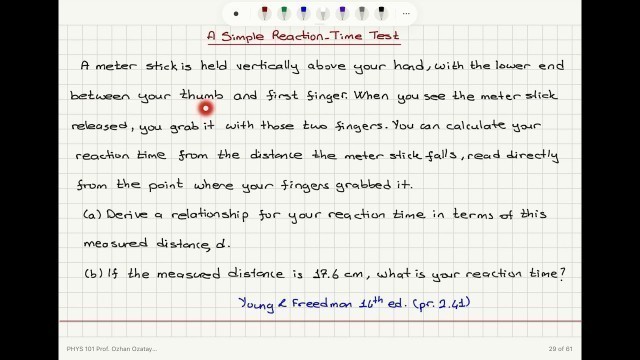 A Simple Reaction-Time Test
A meter stick is held vertically above your hand, with the lower end
between your thumb and first finger. When you see the meter stick
released, you grab it with those two fingers. You can calculate your
reaction time from the distance the meter stick falls, read directly
from the point where your fingers grabbed it.
(a) Derive a relationship for your reaction time in terms of this
measured distance, d.
(b) If the measured distance is 17.6 cm, what is your reaction time?
Young & Freedman 14th ed. (pr. 2.41)
PHYS 101 Prof. Ozhan Ozatay...
29 of 61